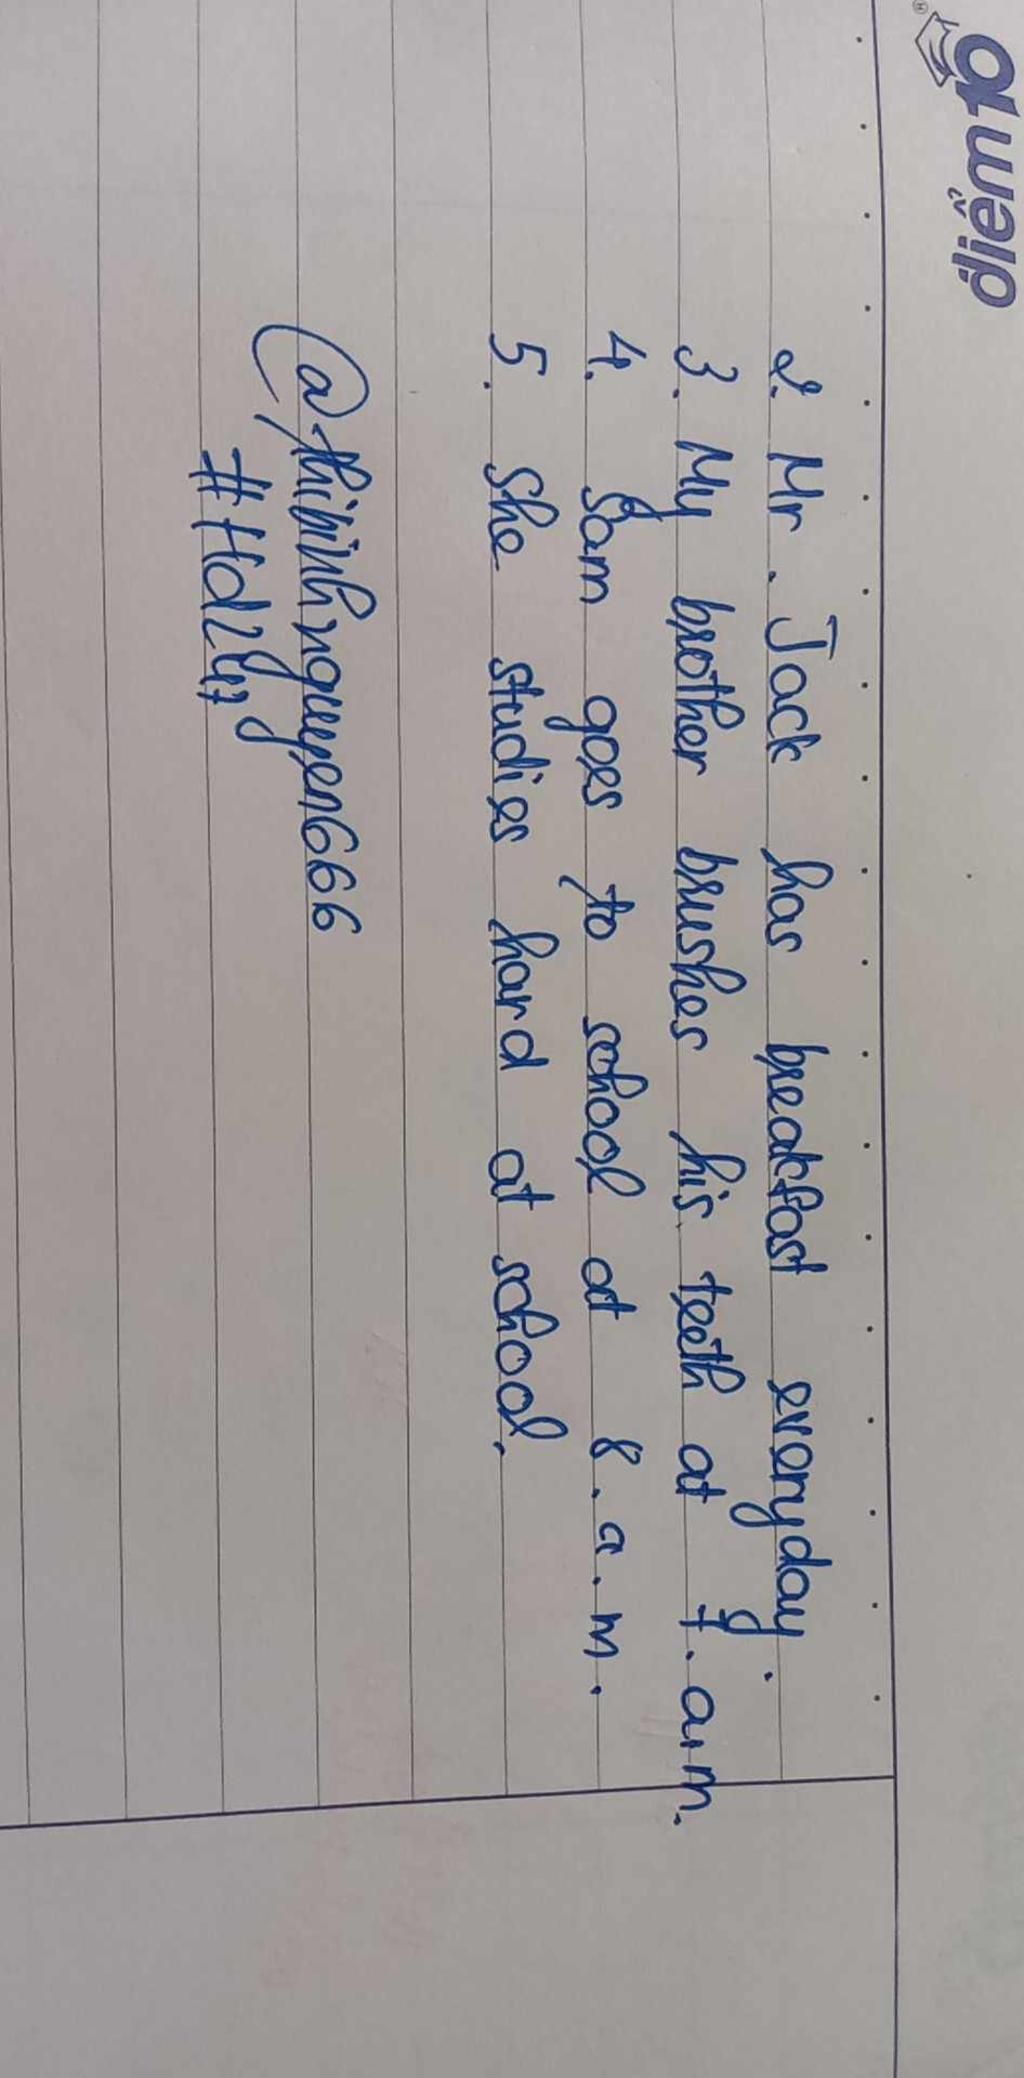 điểm10
2. Mr. Jack has breakfast everyday.
3. My brother brushes his teeth at 7.a.m.
4. Sam goes to school at 8.a.m.
5. She studies hard at school.
@thibinhnguyen666